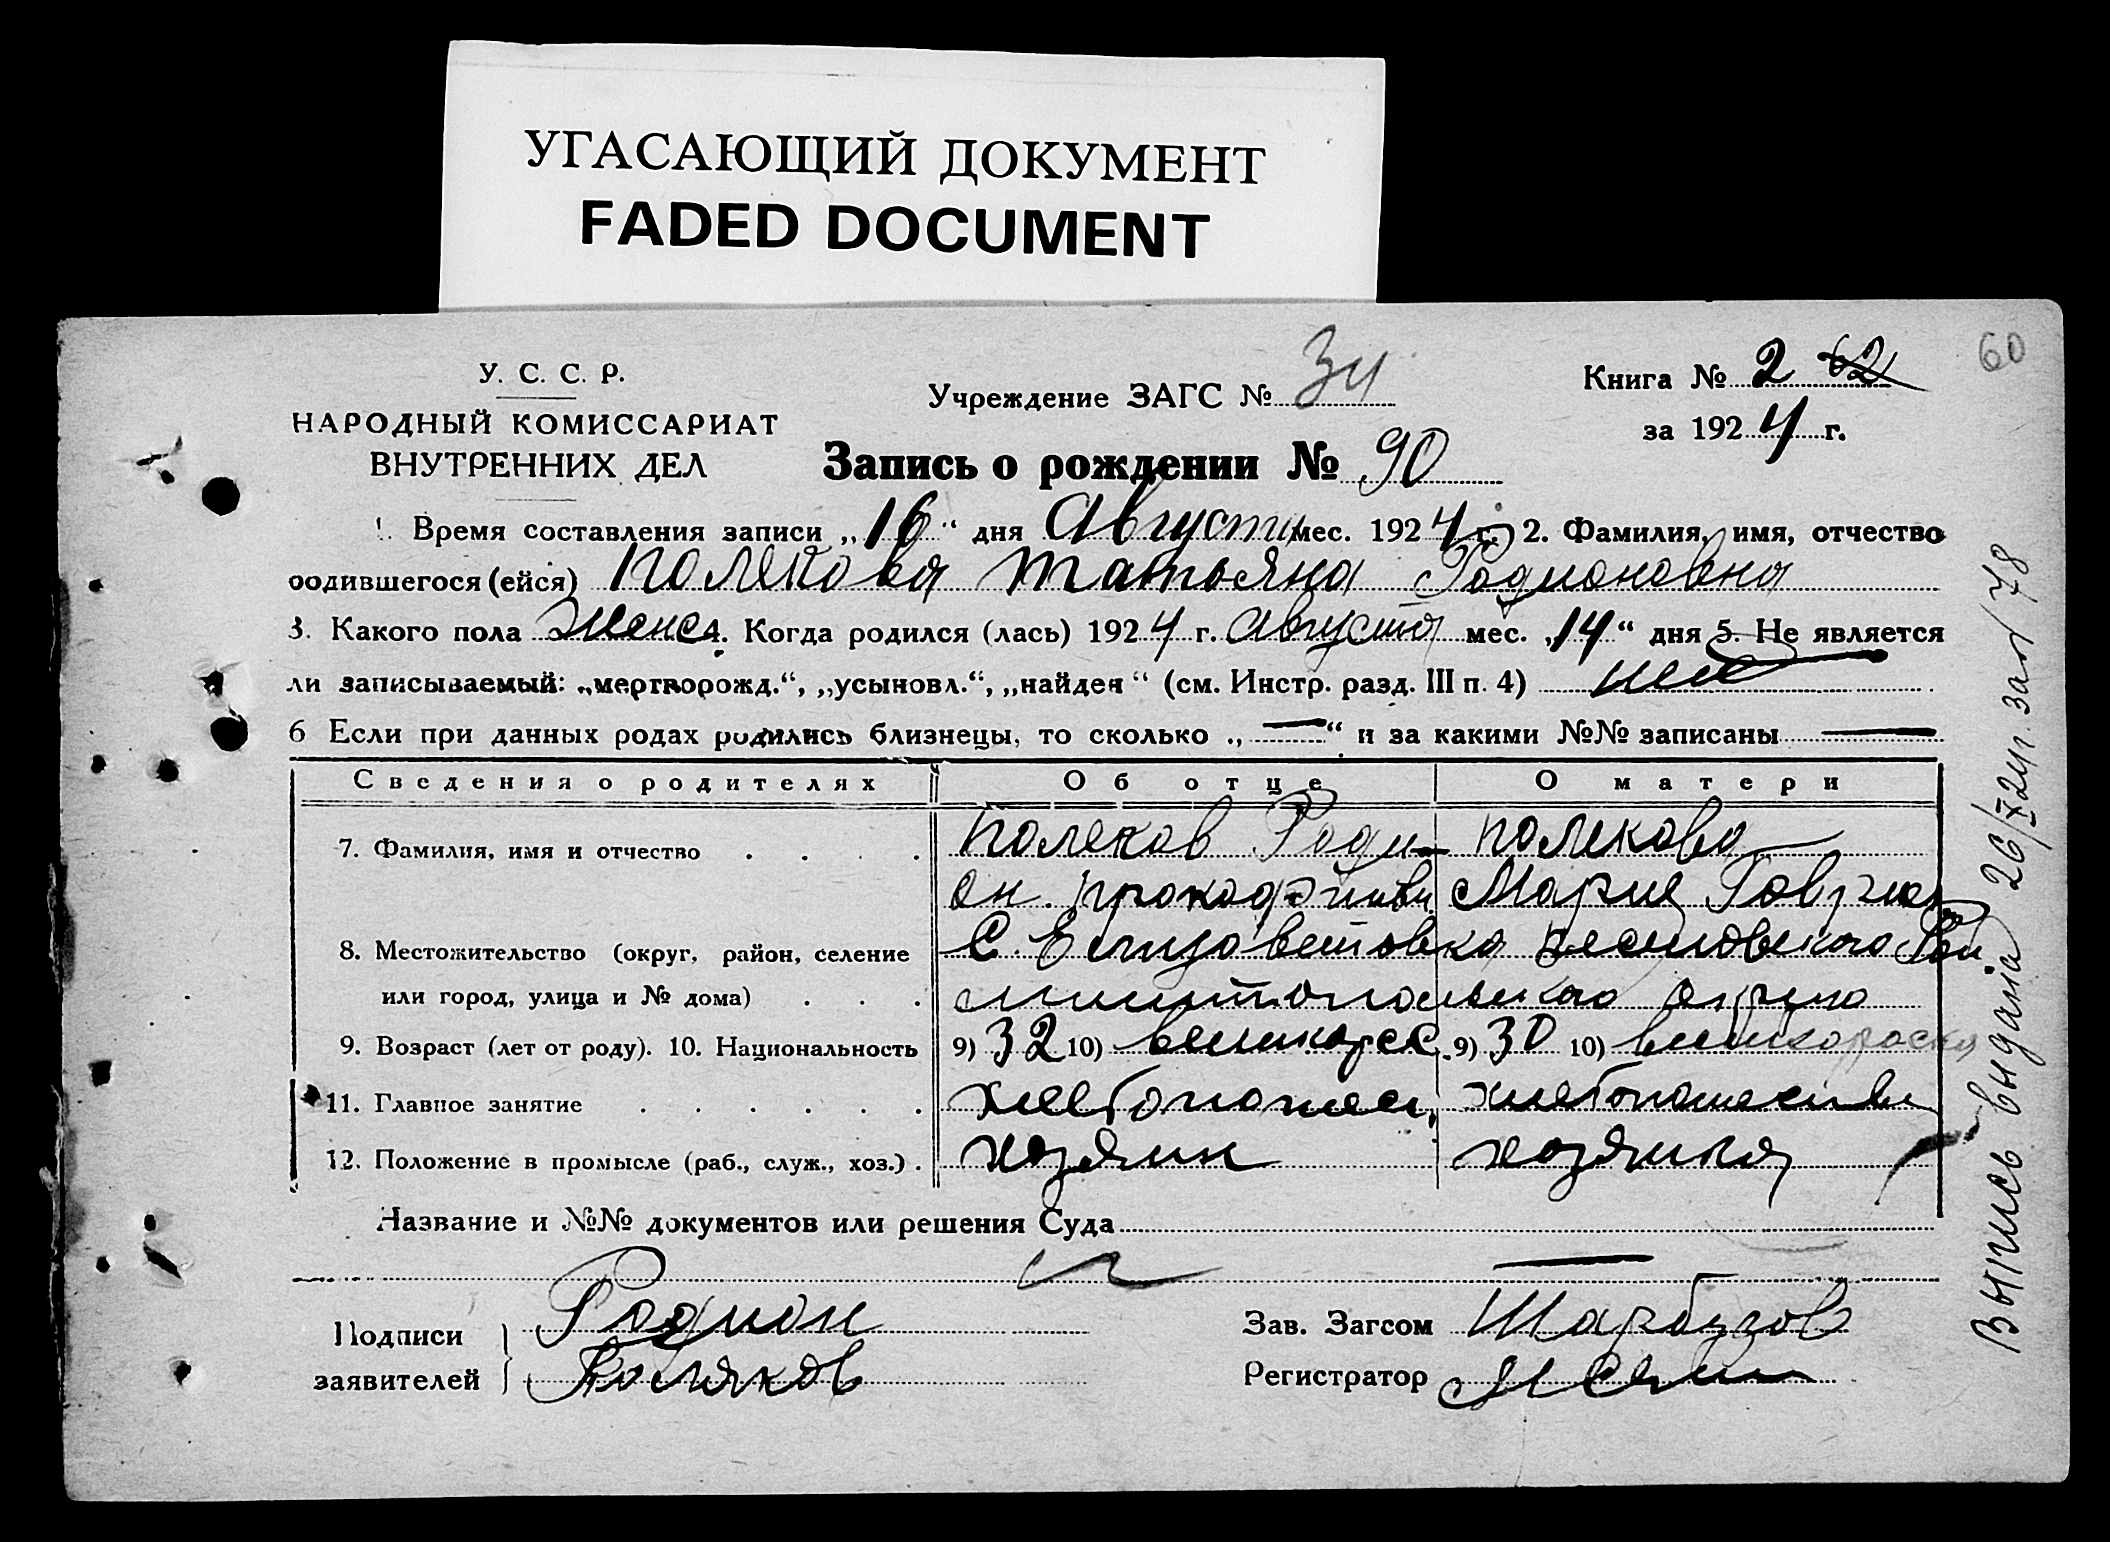 УГАСАЮЩИЙ ДОКУМЕНТ
FADED DOCUMENT
60
У. С. С. Р.
НАРОДНЫЙ КОМИССАРИАТ
ВНУТРЕННИХ ДЕЛ
Учреждение ЗАГС № 34
Книга № 2 62
за 1924 г.
Запись о рождении № 90
1. Время составления записи „16“ дня Августа мес. 1924 г. 2. Фамилия, имя, отчество
родившегося (ейся) Полекова Татьяна Родионовна
3. Какого пола женс 4. Когда родился (лась) 1924 г. Августа мес. „14“ дня 5. Не является
ли записываемый: „мертворожд.“, „усыновл.“, „найден“ (см. Инстр. разд. III п. 4) нет
6 Если при данных родах родились близнецы, то сколько „—“ и за какими №№ записаны —
Сведения о родителях Об отце О матери
7. Фамилия, имя и отчество Полеков Роди- Полекова
он Мария
8. Местожительство (округ, район, селение С. Елизаветовка
или город, улица и № дома) округа
9. Возраст (лет от роду). 10. Национальность 9) 32 10) великорсс. 9) 30 10) великороска
11. Главное занятие хлебопашец хлебопашество
12. Положение в промысле (раб., служ., хоз.) хозяин хозяйка
Название и №№ документов или решения Суда
Подписи заявителей Родион
Поляков
Зав. Загсом Шарбузов
Регистратор
Выпись выдана 26/X 24 г. за № 78